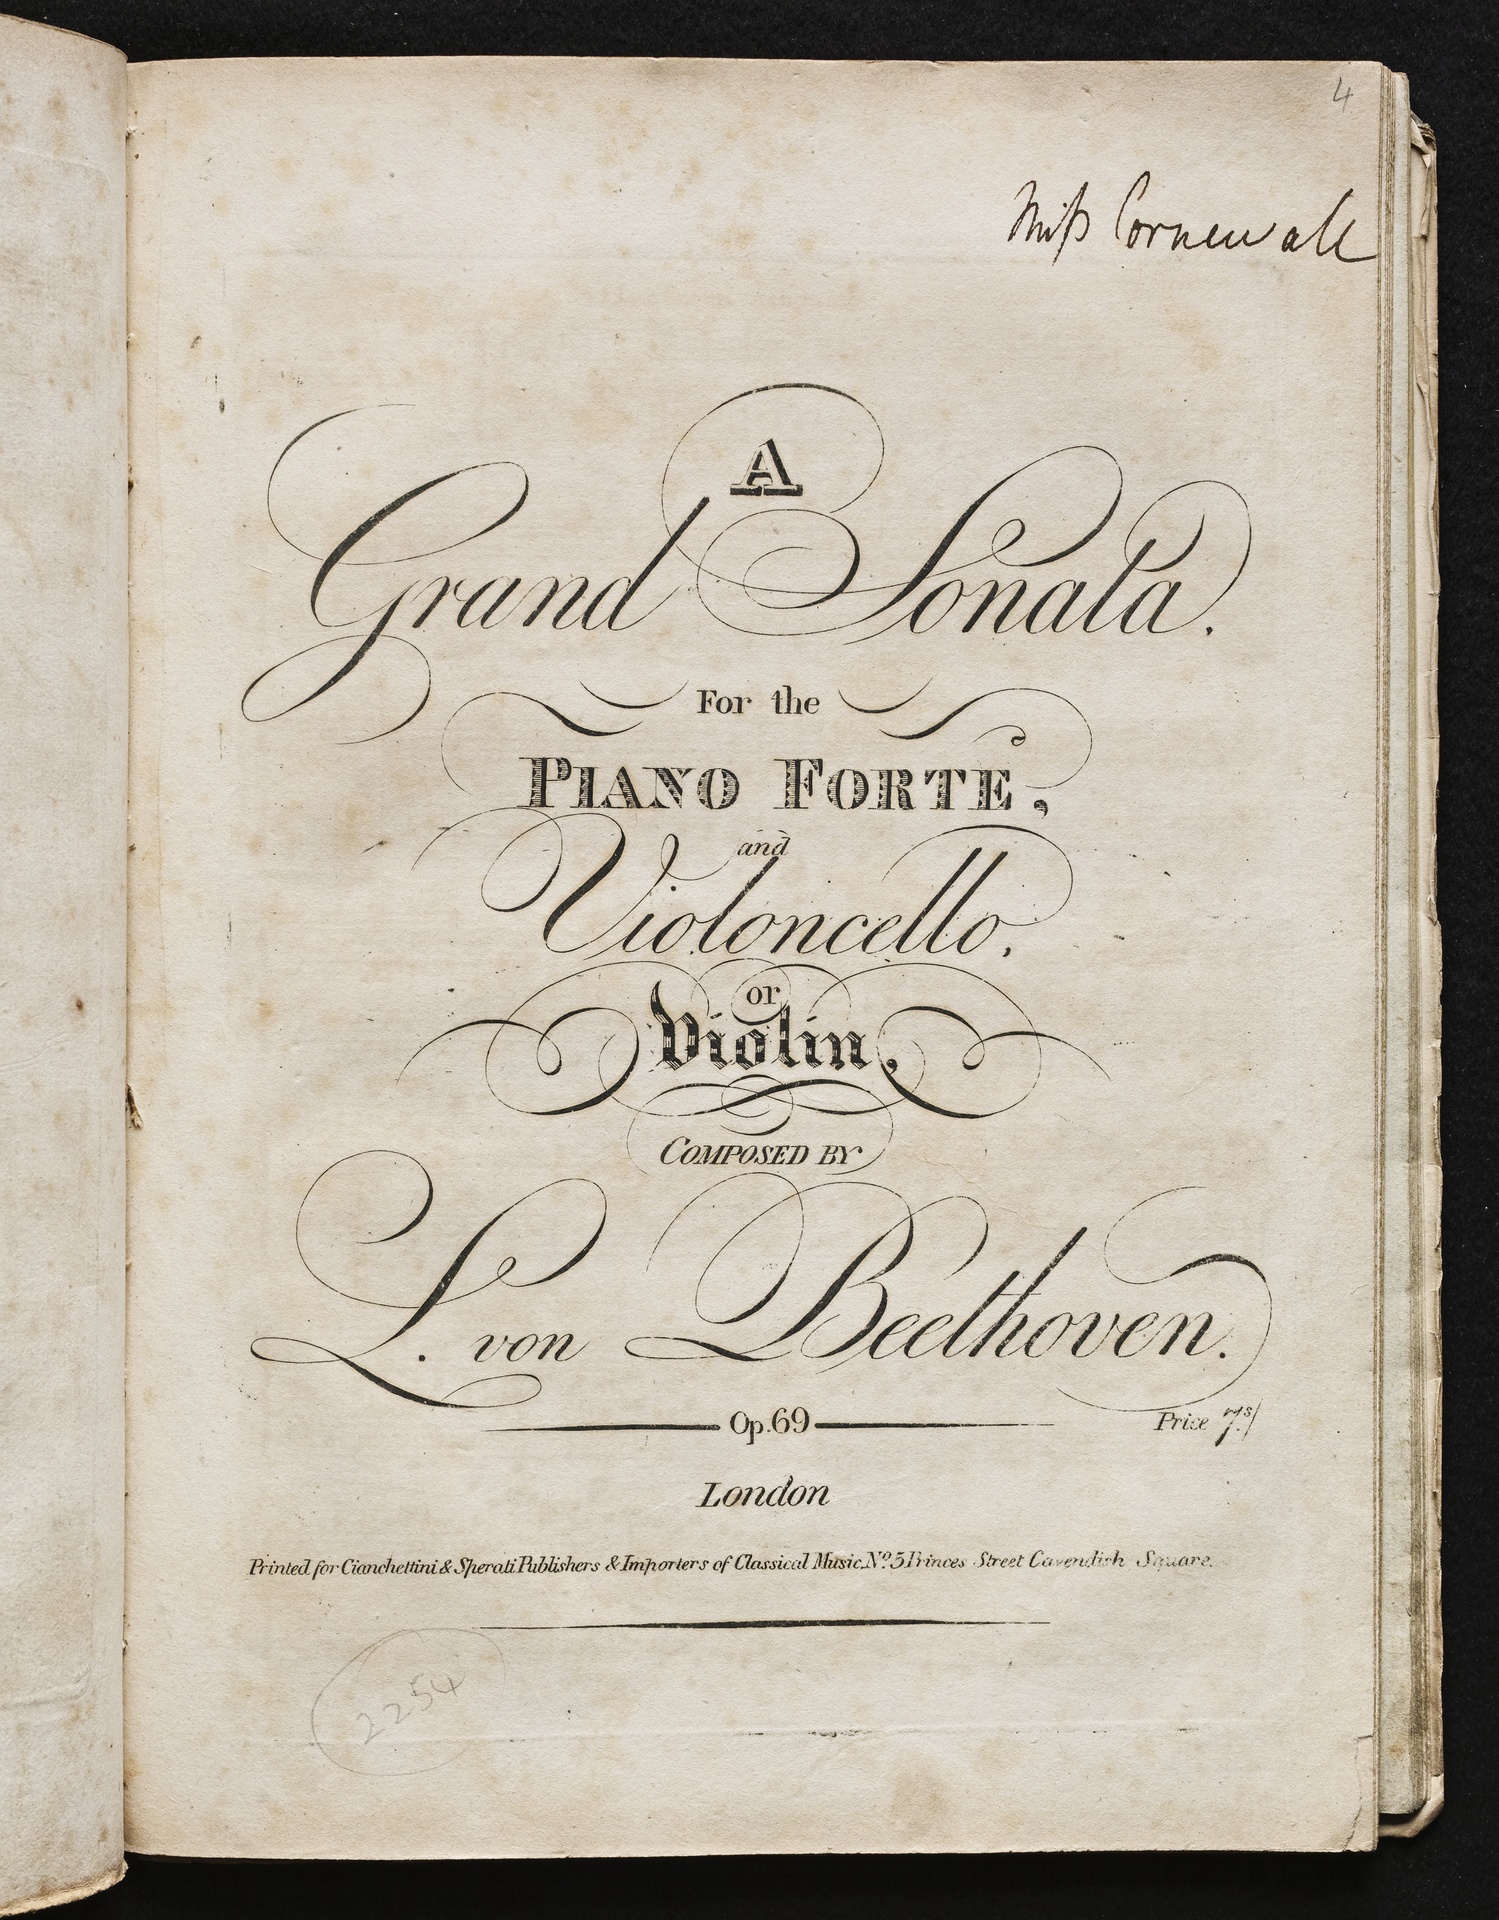 4
Miſs Cornewall
A
Grand Sonata.
For the
PIANO FORTE,
and
Violoncello,
or
Violin,
COMPOSED BY
L. von Beethoven.
Op. 69
Price 7s/
London
Printed for Cianchettini & Sperati Publishers & Importers of Classical Music No. 5 Princes Street Cavendish Square.
2254